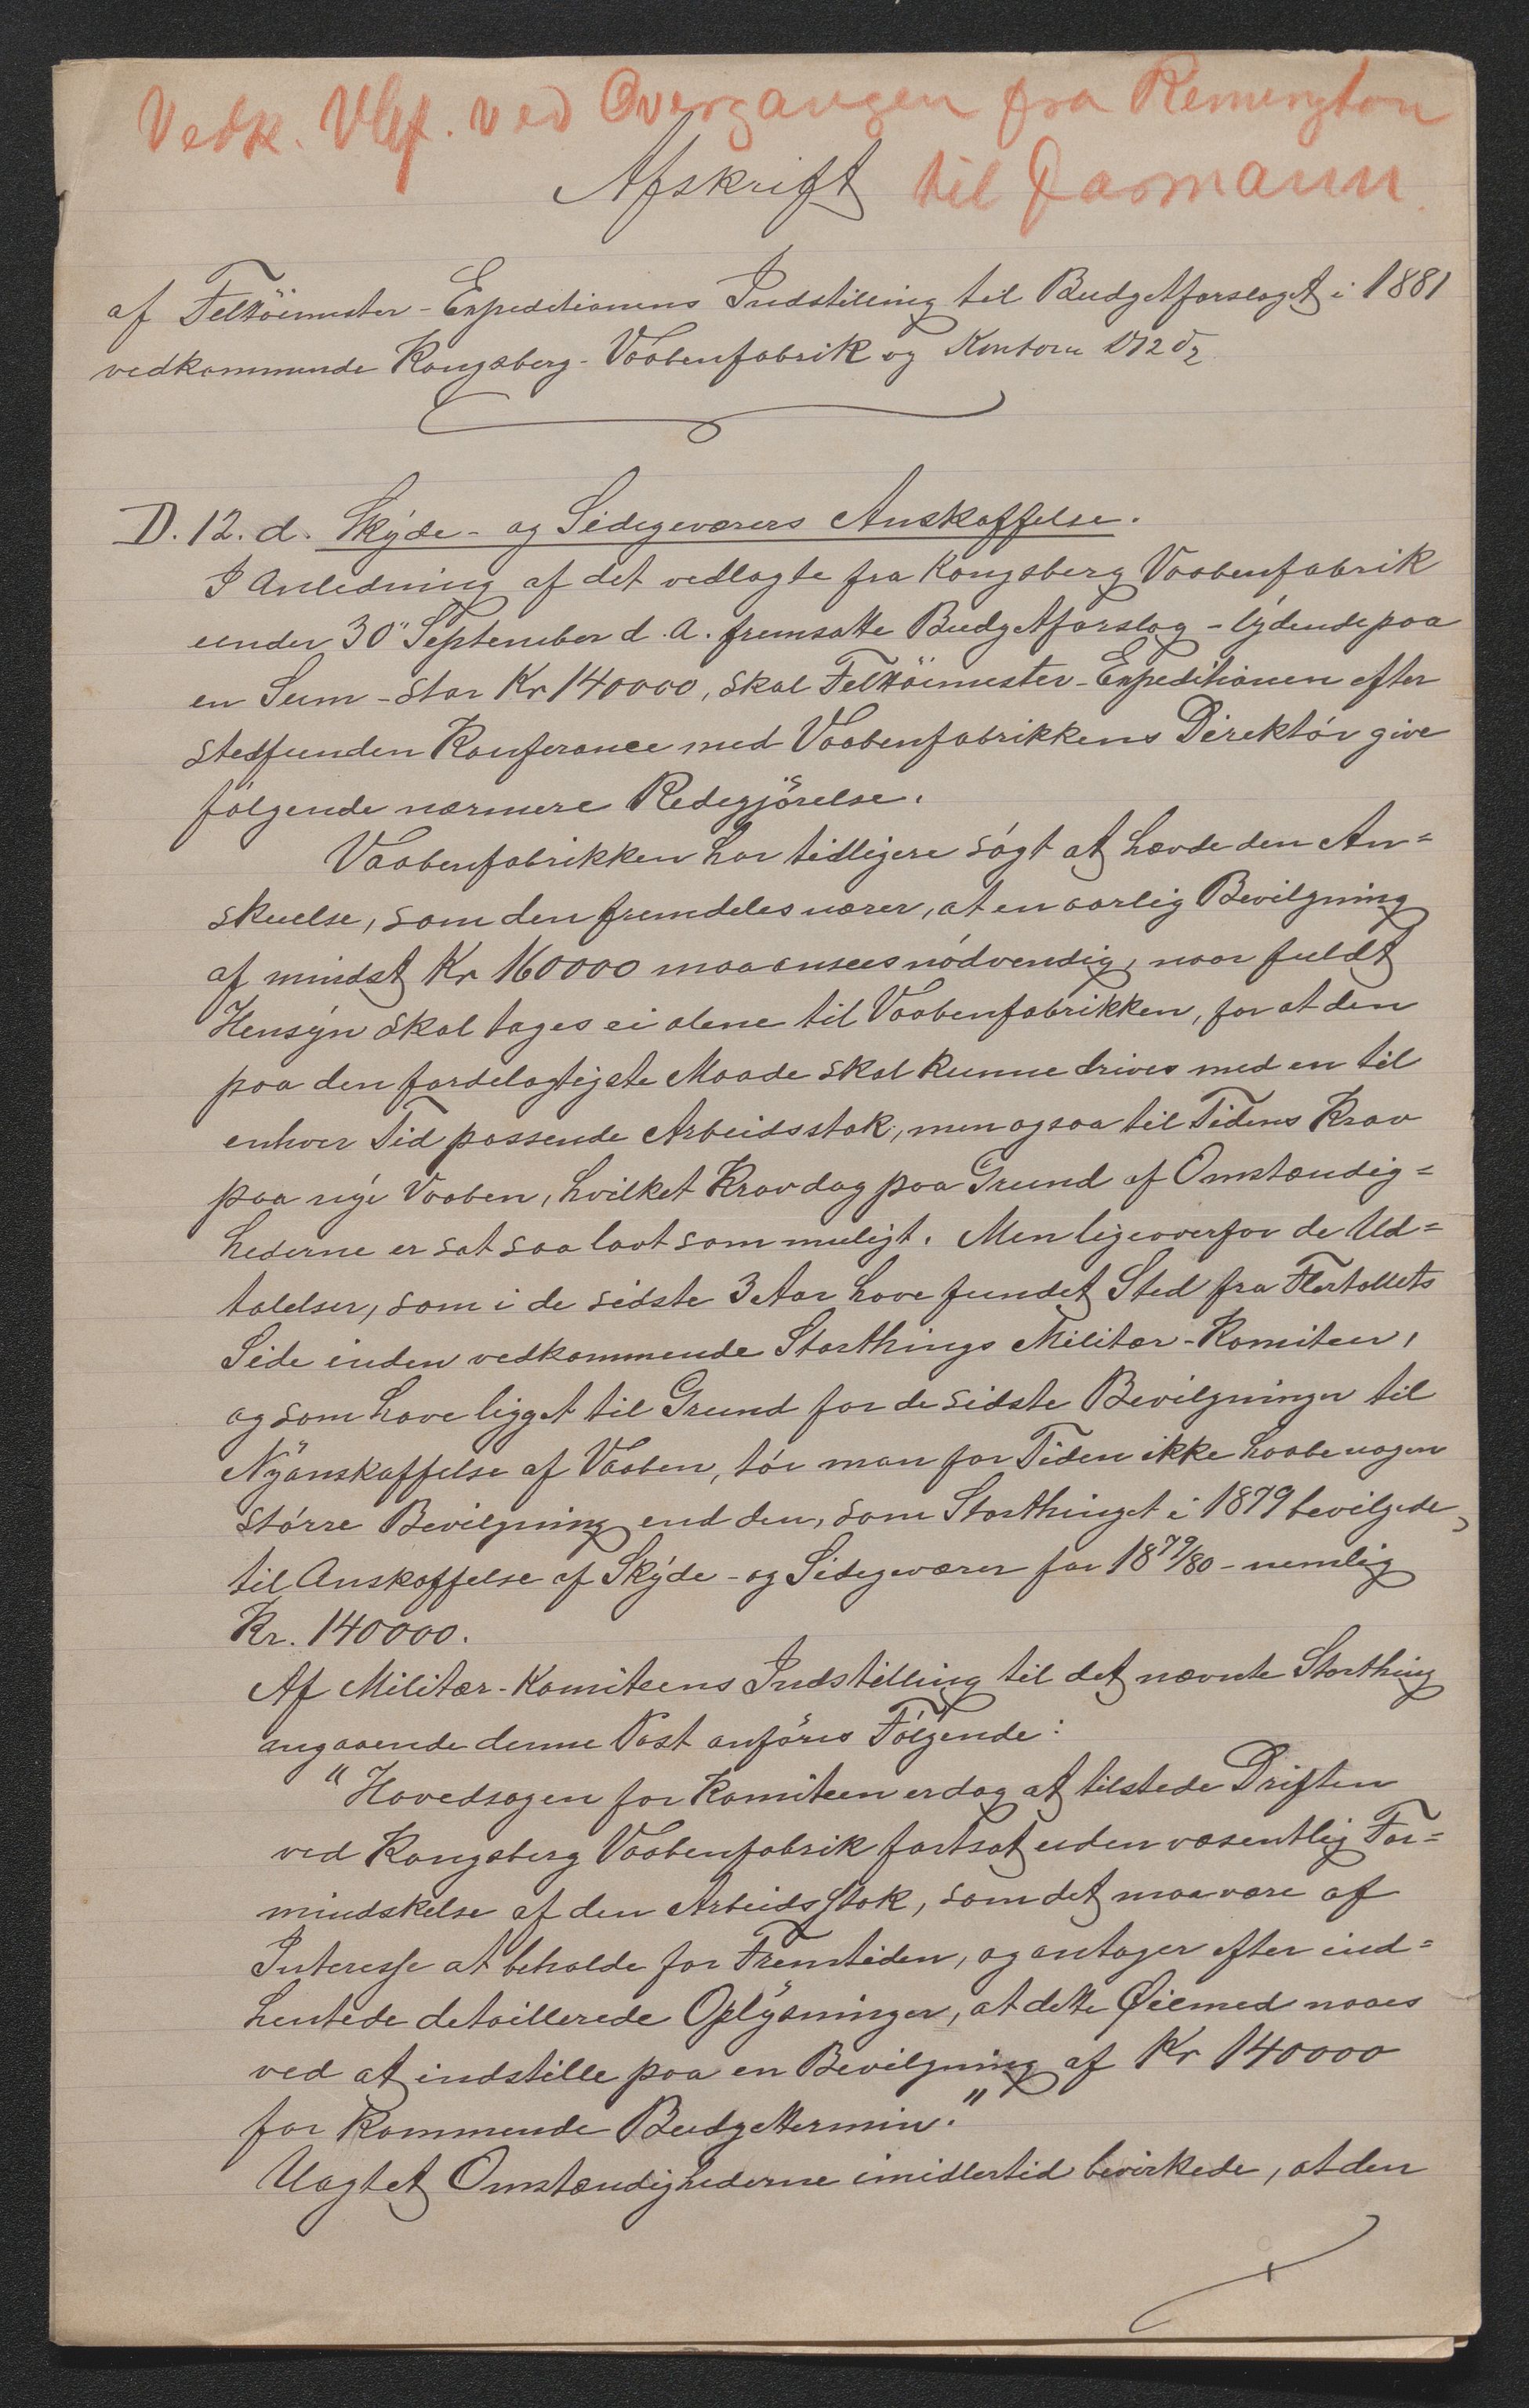 Vedk. Vbf. ved Overgangen fra Remington
Afskrift til Jarmann.
af Feltöimester-Expeditionens Indstilling til Budgetforslaget i 1881
vedkommende Kongsberg-Vaabenfabrik og Kontoen D12d
D. 12. d. Skyde- og Sidegeværers Anskaffelse.
I Anledning af det vedlagte fra Kongsberg Vaabenfabrik
under 30" September d. A. fremsatte Budgetforslag - lydende paa
en Sum - stor Kr 140000, skal Feltöimester-Expeditionen efter
stedfunden Konferance med Vaabenfabrikkens Direktör give
fölgende nærmere Redegjörelse.
Vaabenfabrikken har tidligere sögt at hævde den An=
skuelse, som den fremdeles nærer, at en aarlig Bevilgning
af mindst Kr 160000 maa ansees nödvendig, naar fuldt
Hensyn skal tages ei alene til Vaabenfabrikken, for at den
paa den fordelagtigste Maade skal kunne drives med en til
enhver Tid passende Arbeidsstok, men ogsaa til Tidens Krav
paa nye Vaaben, hvilket Krav dog paa Grund af Omstændig=
hederne er sat saa lavt som muligt. Men ligeoverfor de Ud=
talelser, som i de sidste 3 Aar have fundet Sted fra Flertallets
Side inden vedkommende Storthings Militær-Komiteer,
og som have ligget til Grund for de sidste Bevilgninger til
Nyanskaffelse af Vaaben, tör man for Tiden ikke haabe nogen
större Bevilgning end den, som Storthinget i 1879 bevilgede
til Anskaffelse af Skyde- og Sidegeværer for 1879/80 - nemlig
Kr. 140000.
Af Militær-Komiteens Indstilling til det nævnte Storthing
angaaende denne Post anföres Fölgende:
"Hovedsagen for Komiteen er dog at tilstede Driften
ved Kongsberg Vaabenfabrik fortsat uden væsentlig For=
mindskelse af den Arbeidsstok, som det maa være af
Interesse at beholde for Fremtiden, og antager efter ind=
hentede detaillerede Oplysninger, at dette Øiemed naaes
ved at indstille paa en Bevilgning af Kr 140000
for kommende Budgettermin."
Uagtet Omstændighederne imidlertid bevirkede, at den